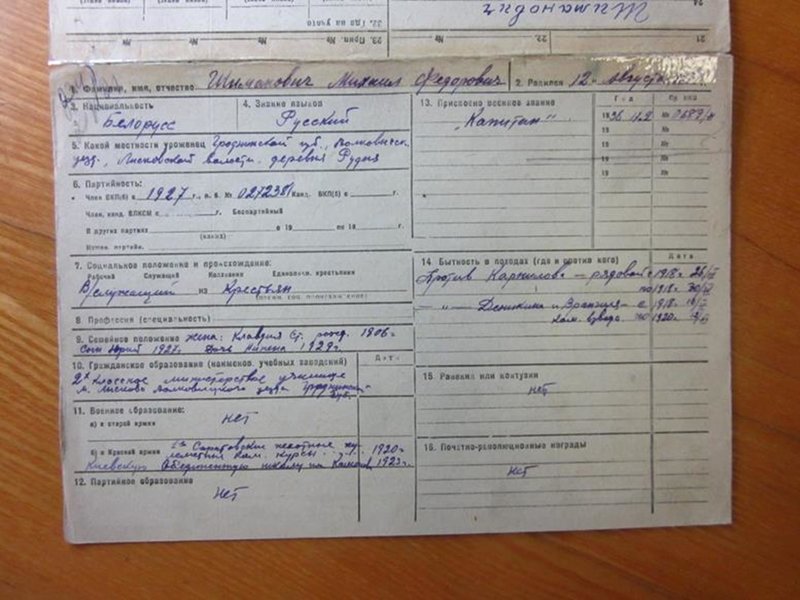 22. Где на учете
23. Прип. №
№
№
№
21
22
24
Шиманович
1. Фамилия, имя, отчество Шиманович Михаил Федорович
2. Родился 12 августа
3. Национальность
Белорусс
4. Знание языков
Русский
5. Какой местности уроженец Гродненской губ., Волковысск.
уезд., Лисковской волости, деревня Рудня
6. Партийность:
Член ВКП(б) с 1927 г., п. б. № 0272381 Канд. ВКП(б) с г.
Член, канд. ВЛКСМ с г. Беспартийный
В других партиях с 19 по 19 г.
(каких)
Наимен. партийн.
7. Социальное положение и происхождение:
Рабочий Служащий Колхозник Единоличн. крестьянин
В/служащий из Крестьян
8. Профессия (специальность)
9. Семейное положение жена: Клавдия Ст. рожд. 1906г
Сын Юрий 1927г. Дочь Нинель 1929г.
10. Гражданское образование (наименов. учебных заведений)
Дата
2х классное министерское училище
м. Лысково Волковысского уезда Гродненской
губ.
11. Военное образование:
а) в старой армии нет
б) в Красной армии Саратовские пехотные пу-
леметные ком. курсы 1920г
Киевскую Объединенную школу им Каменев. 1923г.
12. Партийное образование
нет
13. Присвоено военное звание
Год
№ НКО
„Капитан“
1936 № 0688/п
19 №
19 №
19 №
19 №
14. Бытность в походах (где и против кого)
Дата
Против Корнилова — рядовой с 1918г.
по 1918г.
—„— Деникина и Врангеля — с 1918г.
Ком. взвода по 1920г.
15. Ранения или контузии
нет
16. Почетно-революционные награды
нет